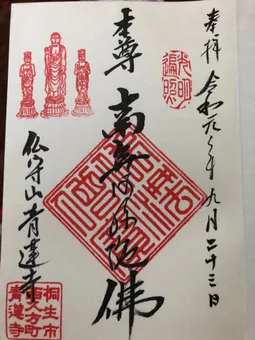 奉拝 令和元年九月二十三日
光明
遍照
本尊 南無阿弥陀佛
仏守山 青蓮寺
桐生市
西久方町
青蓮寺